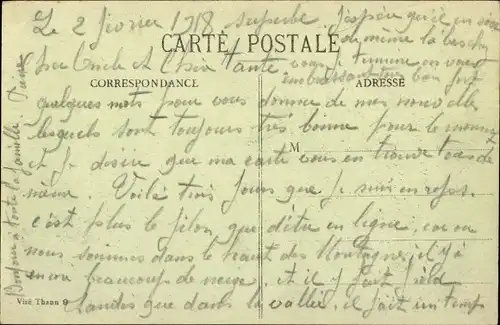 Le 2 février 1918
CARTE POSTALE
CORRESPONDANCE
ADRESSE
Cher Oncle et Chère Tante
quelques mots pour vous donner de mes nouvelles
lesquels sont toujours très bonne pour le moment
et je désire que ma carte vous en trouve tous de
même. Voilà trois jours que je suis en repos.
c'est plus le filon que d'être en ligne, car ou
nous sommes dans le haut des Montagnes il y a
encore beaucoup de neige, et il y fait froid
tandis que dans la vallée, il fait un temps
superbe J'espère qu'il en soit
de même là bas
vous en vous
embrassant bien fort
M
Bonjour à toute la famille.
Visé Thaon 9